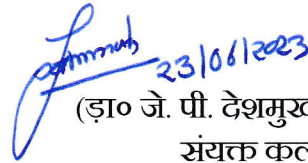 23/06/2023
(ड़ा० जे. पी. देशमुख
संयुक्त